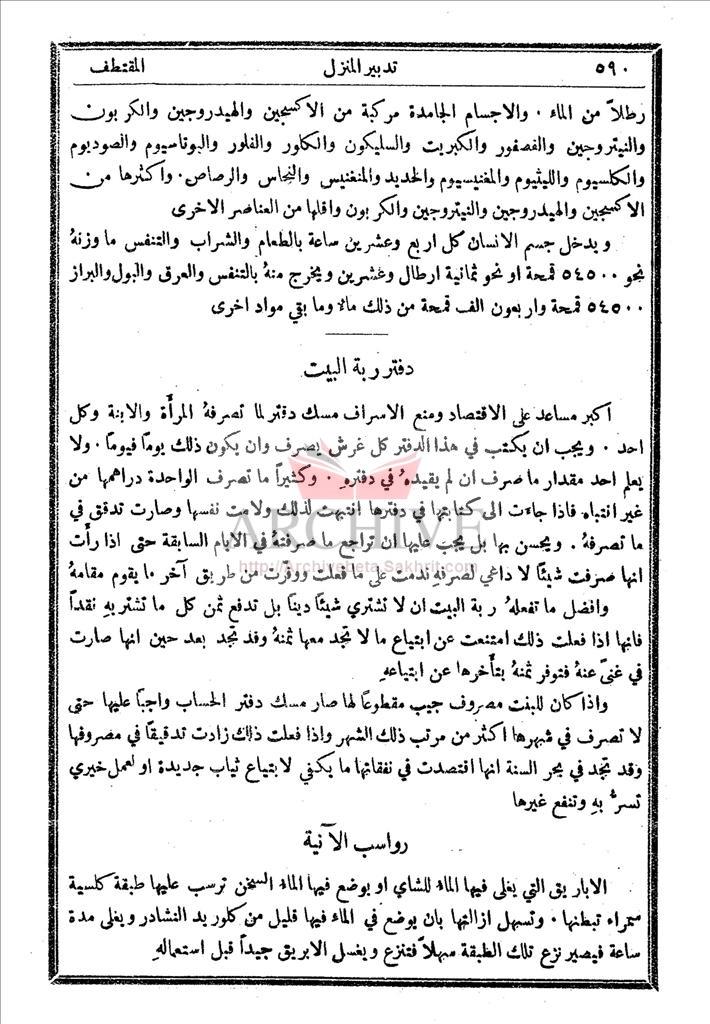 ٥٩٠ تدبير المنزل المقتطف
رطلاً من الماء · والاجسام الجامدة مركبة من الاكسجين والهيدروجين والكربون
والنيتروجين والفصفور والكبريت والسليكون والكلور والفلور والبوتاسيوم والصوديوم
والكلسيوم والليثيوم والمغنيسيوم والحديد والمنغنيس والنحاس والرصاص · واكثرها من
الاكسجين والهيدروجين والنيتروجين والكربون واقلها من العناصر الاخرى
ويدخل جسم الانسان كل اربع وعشرين ساعة بالطعام والشراب والتنفس ما وزنهُ
نحو ٥٤٥٠٠ قمحة او نحو ثمانية ارطال وعشرين ويخرج منهُ بالتنفس والعرق والبول والبراز
٥٤٥٠٠ قمحة واربعون الف قمحة من ذلك مالا وما بقي مواد اخرى
دفتر ربة البيت
اكبر مساعد على الاقتصاد ومنع الاسراف مسك دفتر لما تصرفهُ المرأة والابنة وكل
احد · ويجب ان يكتب في هذا الدفتر كل غرش يصرف وان يكون ذلك يوماً فيوماً · ولا
يعلم احد مقدار ما صرف ان لم يقيدهُ في دفتره · وكثيراً ما تصرف الواحدة دراهمها من
غير انتباه فاذا جاءت الى كتابتها في دفترها انتبهت لذلك ولامت نفسها وصارت تدقق في
ما تصرفهُ . ويحسن بها بل يجب عليها ان تراجع ما صرفتهُ في الايام السابقة حتى اذا رأت
انها صرفت شيئاً لا داعي لصرفهِ ندمت على ما فعلت ووفرت من طريق آخر ما يقوم مقامهُ
وافضل ما تفعلهُ ربة البيت ان لا تشتري شيئاً ديناً بل تدفع ثمن كل ما تشتريهِ نقداً
فانها اذا فعلت ذلك امتنعت عن ابتياع ما لا تجد معها ثمنهُ وقد تجد بعد حين انها صارت
في غنىً عنهُ فتوفر ثمنهُ بتأخرها عن ابتياعهِ
واذا كان للبنت مصروف جيب مقطوعًا لها صار مسك دفتر الحساب واجبًا عليها حتى
لا تصرف في شهرها اكثر من مرتب ذلك الشهر واذا فعلت ذلك زادت تدقيقًا في مصروفها
وقد تجد في بحر السنة انها اقتصدت في نفقاتها ما يكفي لابتياع ثياب جديدة او لعمل خيري
تسرُّ بهِ وتنفع غيرها
رواسب الآنية
الاباريق التي يغلى فيها الماء للشاي او يوضع فيها الماء السخن ترسب عليها طبقة كلسية
سمراء تبطنها · وتسهل ازالتها بان يوضع في الماء فيها قليل من كلوريد النشادر ويغلى مدة
ساعة فيصير نزع تلك الطبقة سهلاً فتنزع ويغسل الابريق جيداً قبل استعمالهِ
ARCHIVE
http://Archivebeta.Sakhrit.com